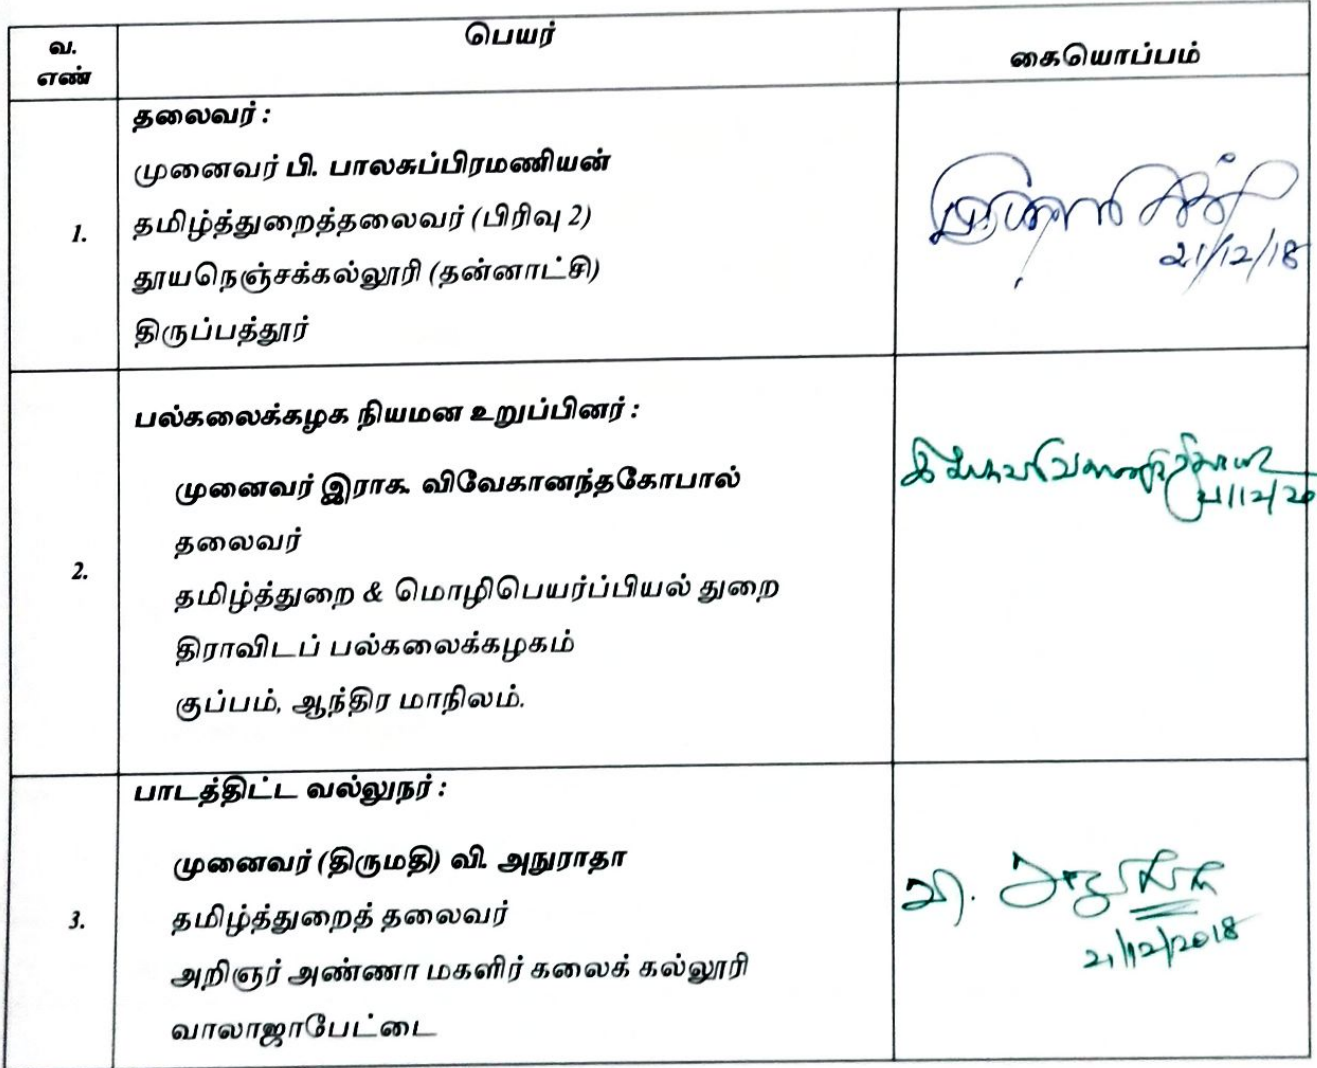 வ. எண்
பெயர்
கையொப்பம்
1.
தலைவர் :
முனைவர் பி. பாலசுப்பிரமணியன்
தமிழ்த்துறைத்தலைவர் (பிரிவு 2)
தூயநெஞ்சக்கல்லூரி (தன்னாட்சி)
திருப்பத்தூர்
21/12/18
2.
பல்கலைக்கழக நியமன உறுப்பினர் :
முனைவர் இராக. விவேகானந்தகோபால்
தலைவர்
தமிழ்த்துறை & மொழிபெயர்ப்பியல் துறை
திராவிடப் பல்கலைக்கழகம்
குப்பம், ஆந்திர மாநிலம்.
21/12/20
3.
பாடத்திட்ட வல்லுநர் :
முனைவர் (திருமதி) வி. அநுராதா
தமிழ்த்துறைத் தலைவர்
அறிஞர் அண்ணா மகளிர் கலைக் கல்லூரி
வாலாஜாபேட்டை
வி.
21/12/2018